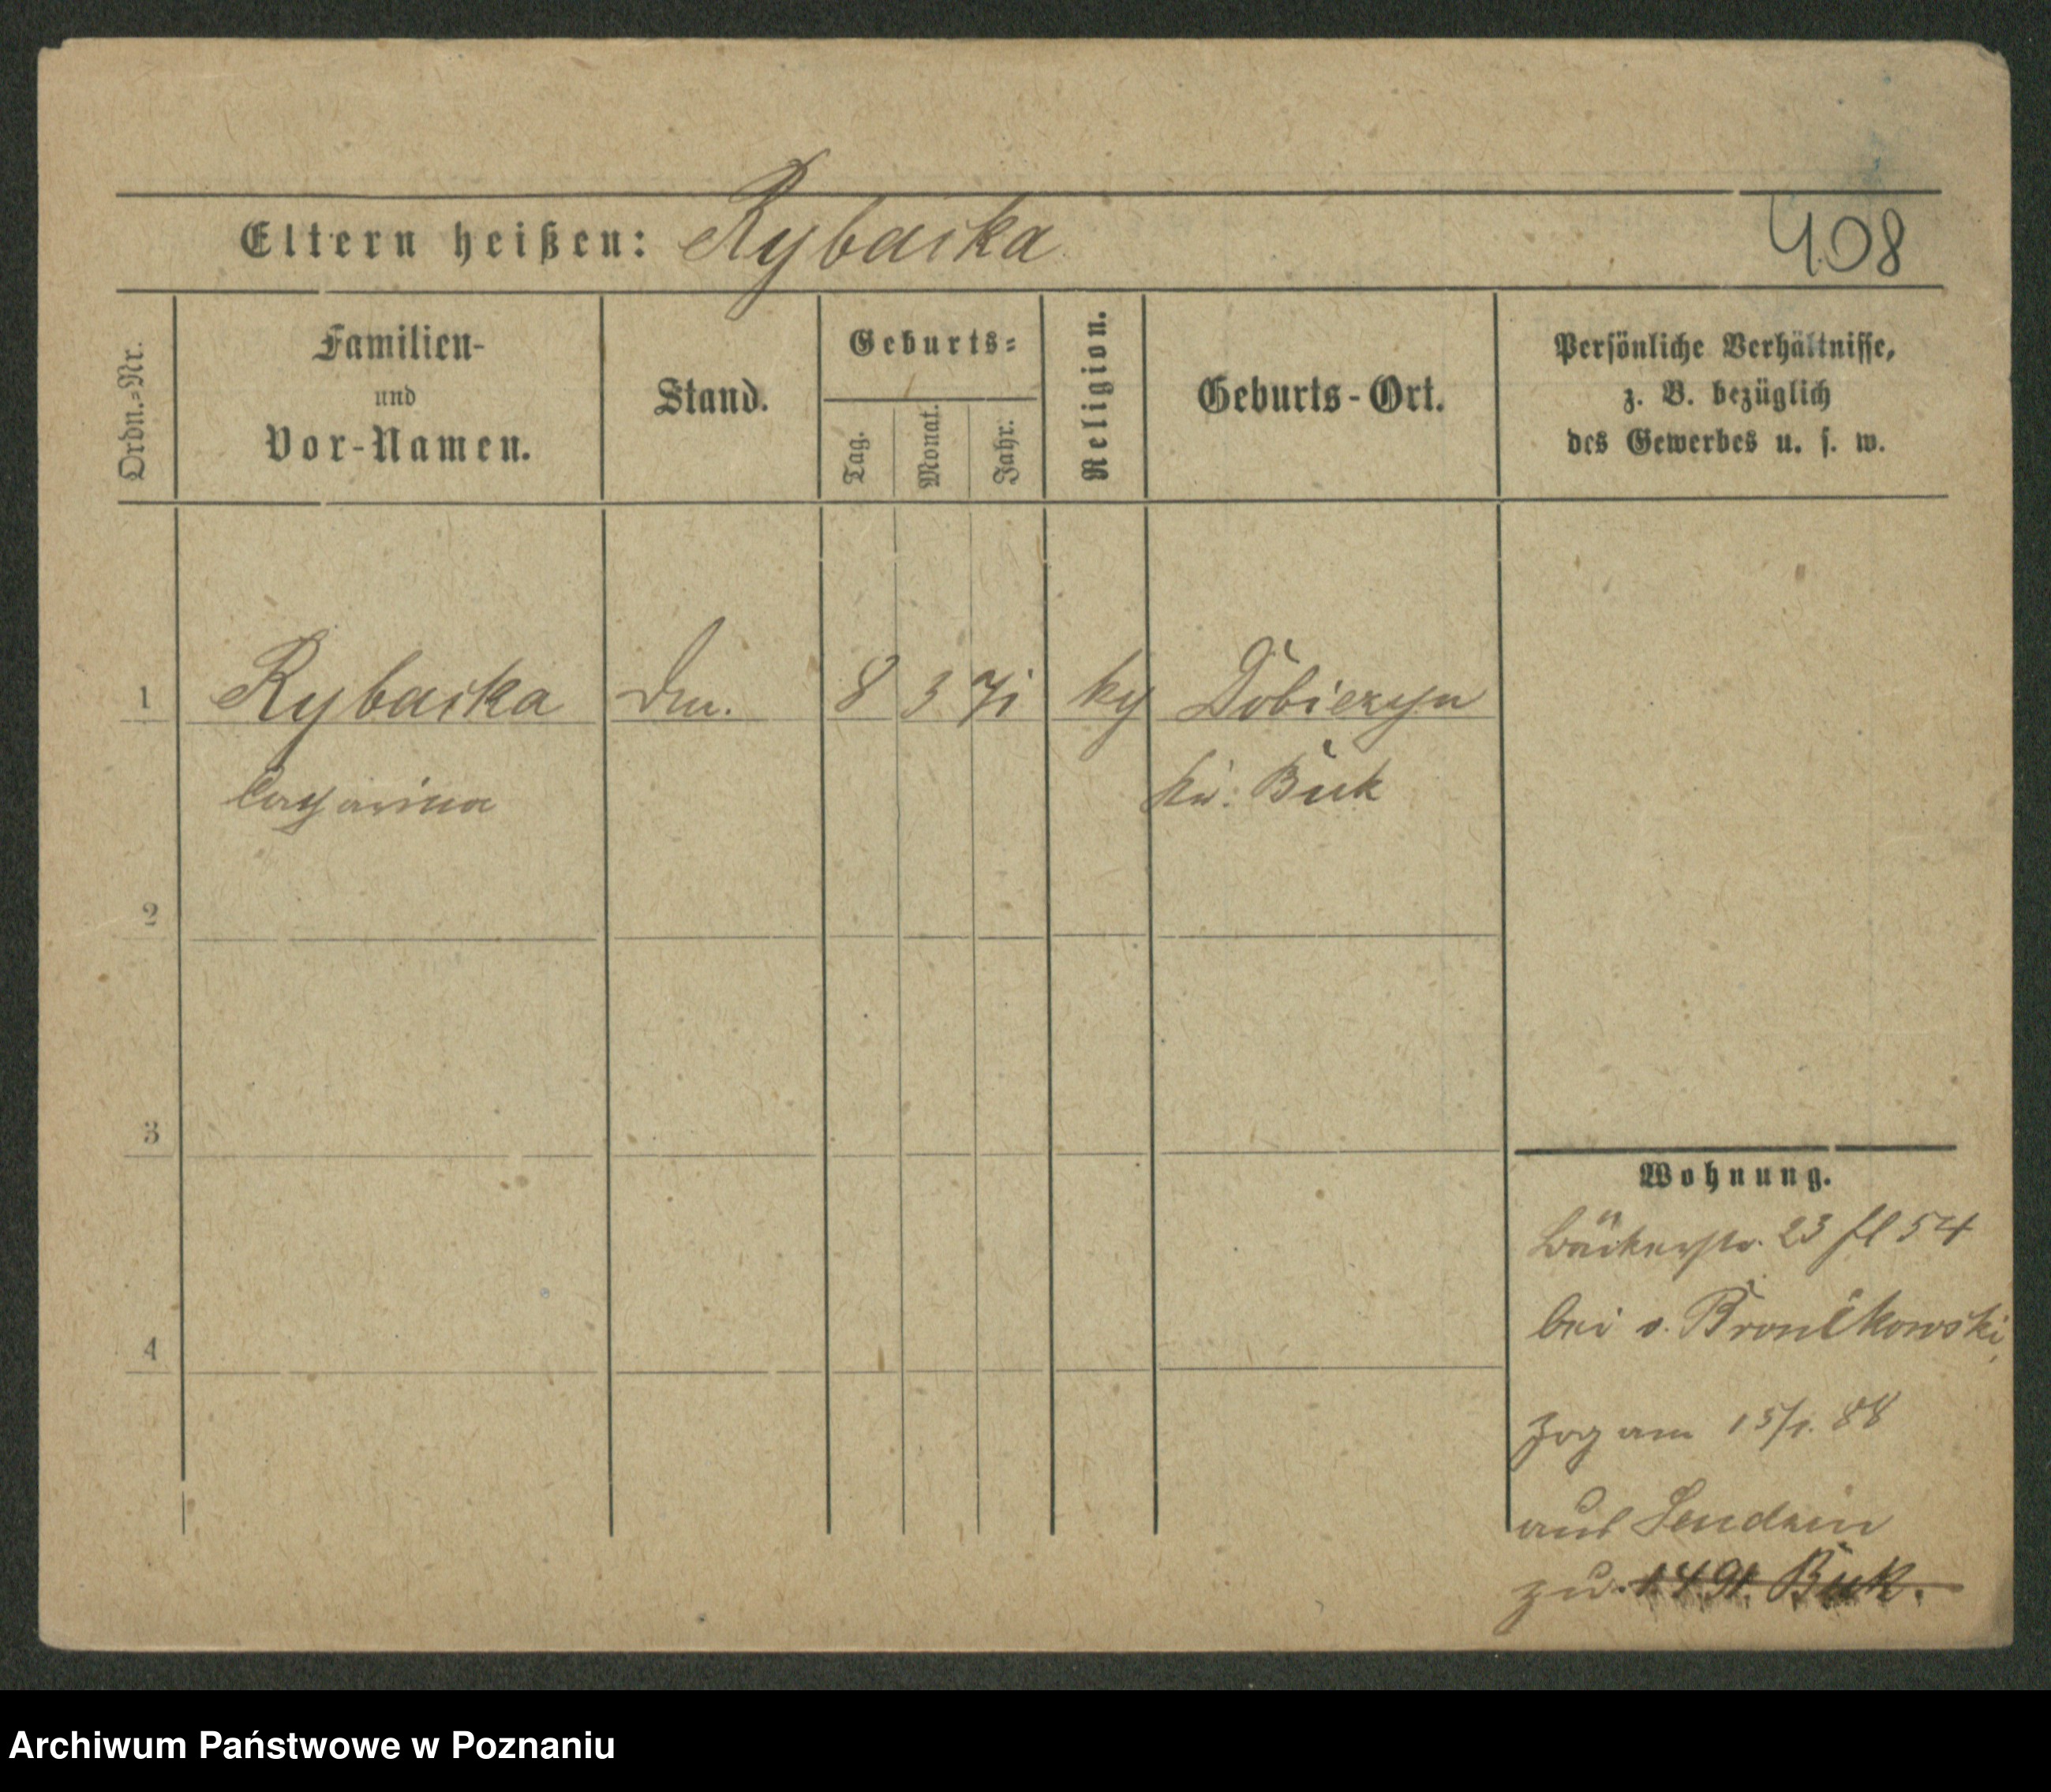 Eltern heißen: Rybacka
408
Ordn.-Nr.
Familien-
und
Vor-Namen.
Stand.
Geburts-
Tag.
Monat.
Jahr.
Religion.
Geburts-Ort.
Persönliche Verhältnisse,
z. B. bezüglich
des Gewerbes u. s. w.
1 Rybacka 8 3 71 Dobiezyn
Catharina Kr. Buk
2
3
4
Wohnung.
Bäckerstr. 23 54
bei v. Bronikowski
Zog am 15/1. 88
aus Sendzin
zu. 1491. Buk.
Archiwum Państwowe w Poznaniu